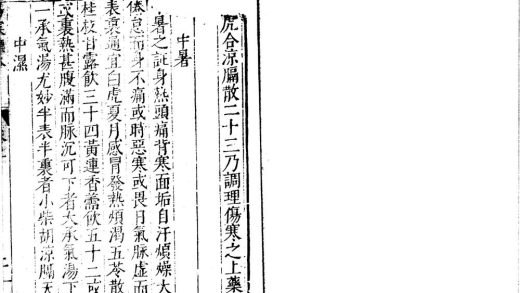 虎合涼膈散二十三乃調理傷寒之上藥
中暑
暑之証身熱頭痛背寒面垢自汗煩燥大
倦怠而身不痛或時惡寒或畏日氣脉虛而
表裏適宜白虎夏月感冒發熱煩渴五苓散
桂枝甘露飲三十四黃連香薷飲五十二或
裏熱甚腹滿而脉沉可下者大承氣湯下
一承氣湯尤妙半表半裏者小柴胡涼膈天
中濕